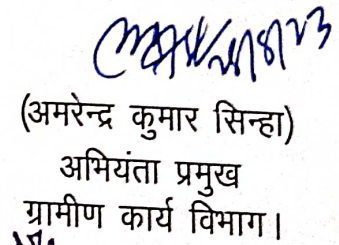 (अमरेन्द्र कुमार सिन्हा)
अभियंता प्रमुख
ग्रामीण कार्य विभाग।